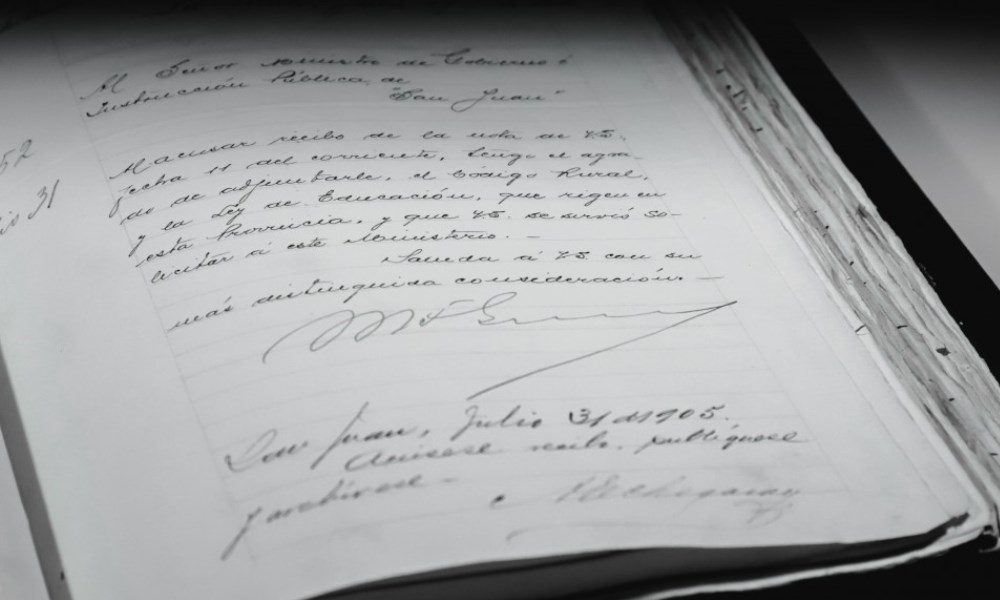 Al Señor Ministro de Gobierno é
Instrucción Pública de
"San Juan"
52
io 31
Al acusar recibo de la nota de VS.
fecha 11 del corriente, tengo el agra-
do de adjuntarle, el Código Rural,
y la Ley de Educación, que rigen en
esta Provincia, y que VS. se sirvió so-
licitar á este Ministerio. —
Saluda á VS con su
más distinguida consideración. —
San Juan, Julio 31 de 1905.
Avísese recibo, publíquese
y archívese —